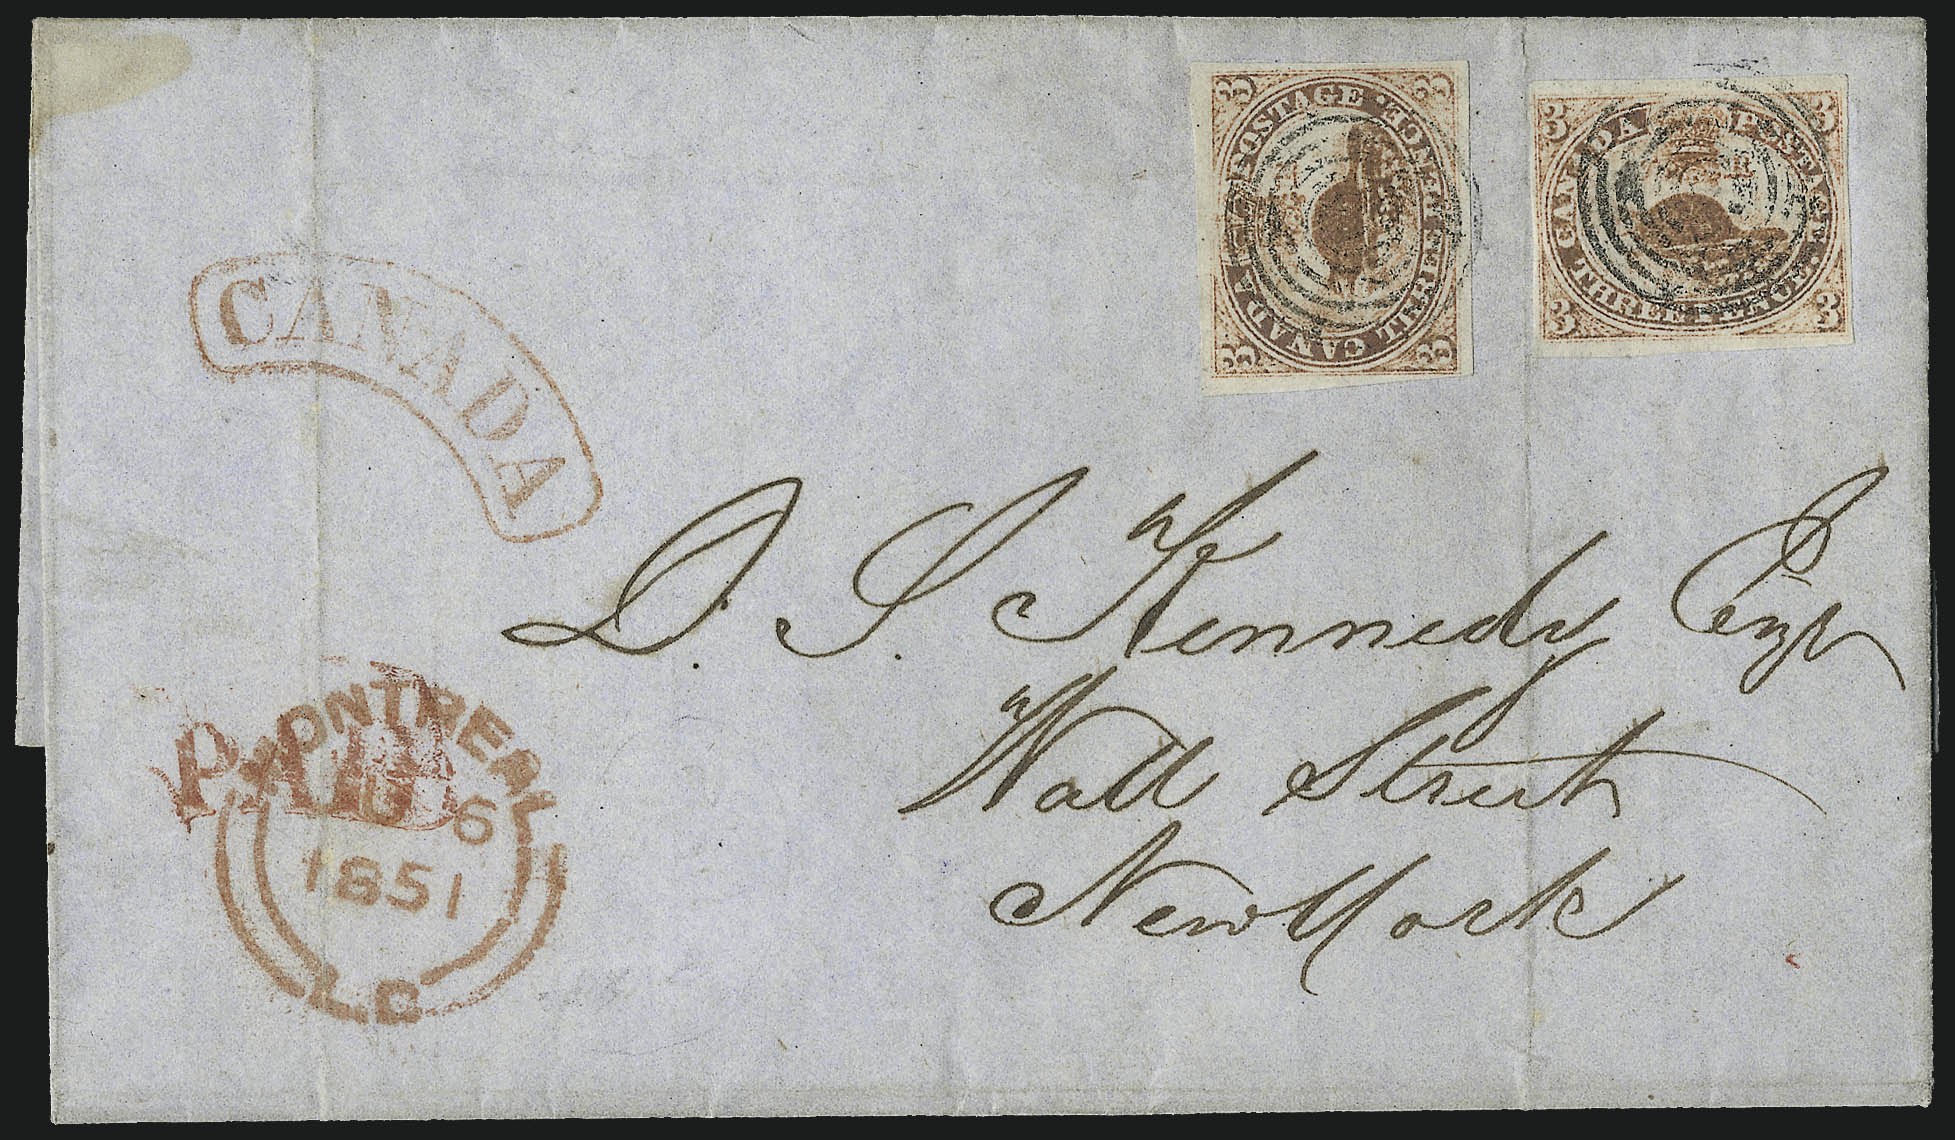 3 3
POSTAGE THREE PENCE. CANADA
3 3
3 3
CANADA POSTAGE THREE PENCE.
3 3
CANADA
D. S. Kennedy Esqr
Wall Street
New York
PAID
MONTREAL
6
1851
L.C